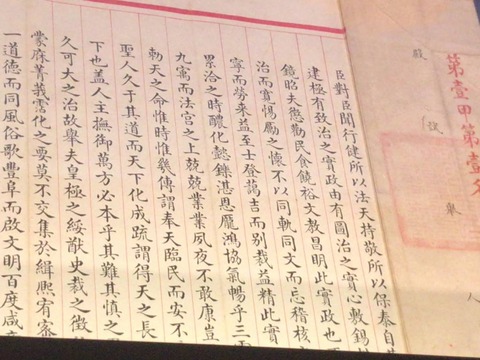 第壹甲第壹名
殿
臣對臣聞行健所以法天持敬所以保泰自
建極有致治之實政由有圖治之實心敷錫
鏡昭夫慝勸民食饒裕文教昌明此實政也
治而實惕勵之懷不以同軌同文而忘稽核
寧而勞來益至士登藹吉而別裁益精此實
累洽之時醲化懿鑠湛恩龐鴻協氣暢乎三
九寓而法宮之上兢兢業業夙夜不敢康豈
勑天之命惟時惟幾傳謂奉天臨民而安不
聖人久于其道而天下化成疏謂得天之長
下也蓋人主撫御萬方必本乎其難其慎之
久可大之治故舉夫皇極之綏猷史裁之徵
蒙庥菁莪霑化之要莫不交集於緝熙宥密
一道德而同風俗歌豐阜而啟文明百度咸